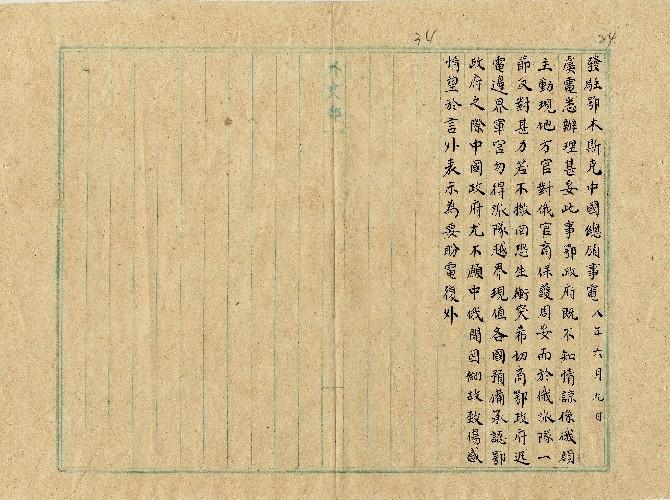 34
24
外交部
發駐鄂木斯克中國總領事電 八年六月九日
虞電悉辦理甚妥此事鄂政府既不知情諒係俄領
主動現地方官對俄官商保護周妥而於俄派隊一
節反對甚力若不撤回恐生衝突希切商鄂政府迅
電邊界軍官勿得派隊越界現值各國預備承認鄂
政府之際中國政府尤不願中俄間因細故致傷感
情望於言外表示為要盼電復外